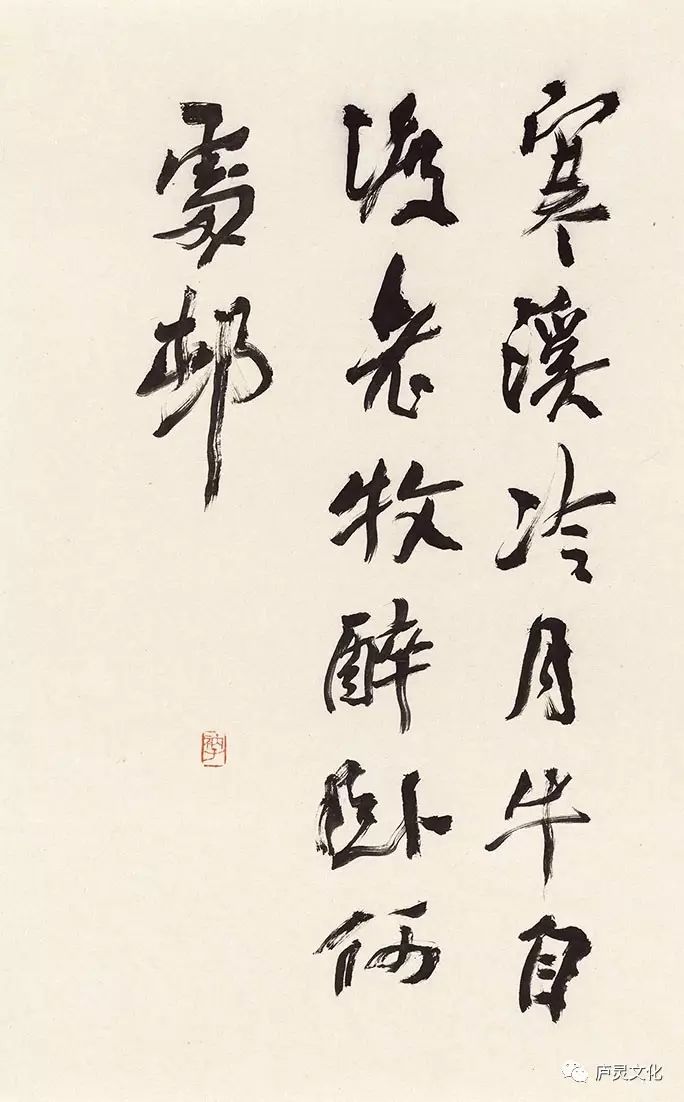 寒溪冷月牛自
渡老牧醉卧何
處邨
庐灵文化